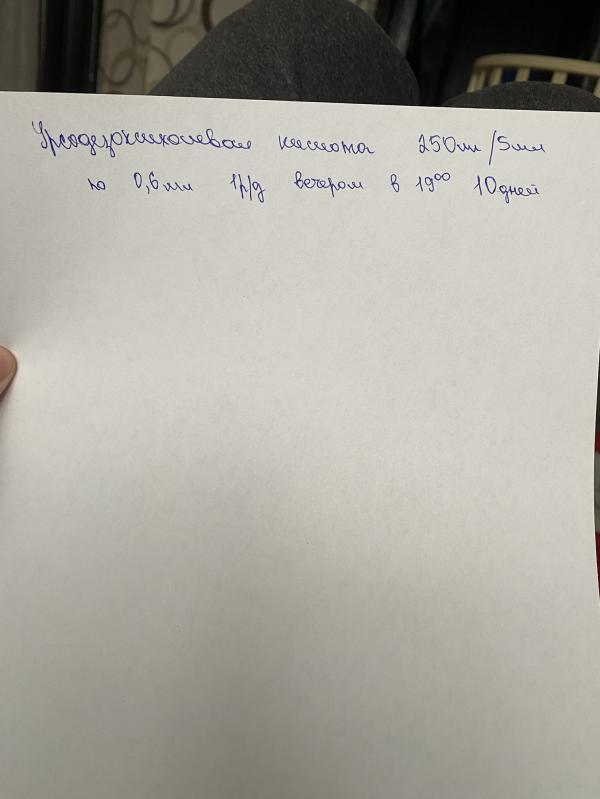 Урсодезоксихолевая кислота 250мг/5мл
по 0,6мл 1р/д вечером в 19⁰⁰ 10дней